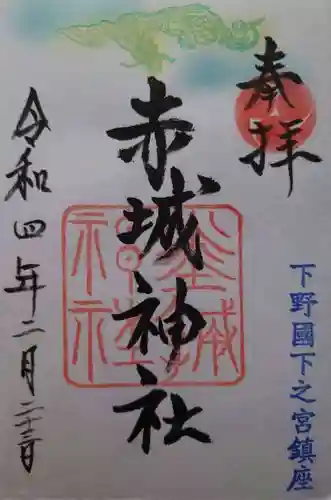 奉拝
下野國下之宮鎮座
赤城神社
令和四年二月二十三日